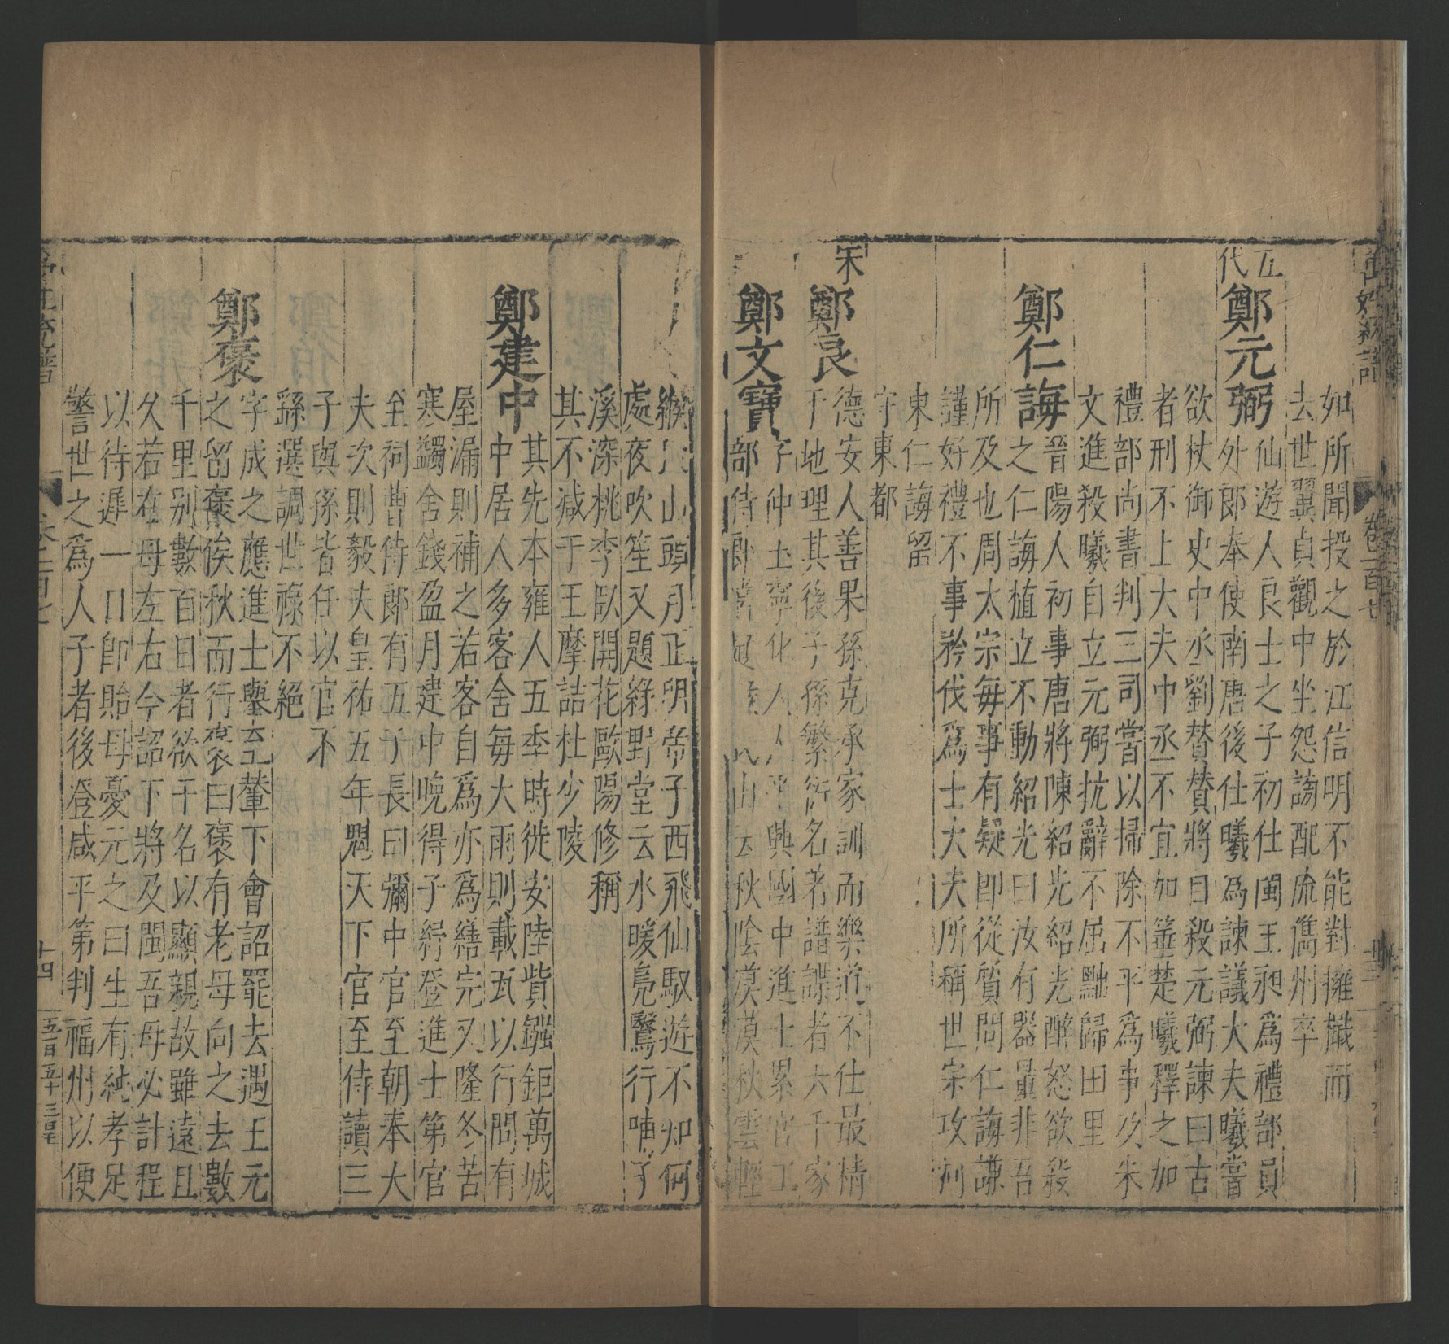 如所聞投之於江信明不能對擁檝而
去世翼貞觀中坐怨謫配流儁州卒
五代
鄭元弼
仙遊人良士之子初仕閩王昶爲禮部員
外郎奉使南唐後仕曦爲諫議大夫曦嘗
欲杖御史中丞劉贊贊將自殺元弼諫曰古
者刑不上大夫中丞不宜加箠楚曦釋之加
禮部尚書判三司嘗以掃除不平爲事及朱
文進殺曦自立元弼抗辭不屈黜歸田里
鄭仁誨
晉陽人初事唐將陳紹光紹光醉怒欲殺
之仁誨植立不動紹光曰汝有器量非吾
所及也周太宗每事有疑即從質問仁誨謙
謹好禮不事矜伐爲士大夫所稱世宗攻河
東仁誨留
守東都
宋
鄭良
德安人善果孫克承家訓而樂道不仕最精
于地理其後子孫繁衍名著譜諜者六千家
鄭文寶
字仲玉寧化人太平興國中進士累官工
部侍郎嘗題緱氏山云秋陰漠漠秋雲輕
緱氏山頭月正明帝子西飛仙馭遊不知何
處夜吹笙又題綠野堂云水暖鳧鷖行哺子
溪深桃李臥開花歐陽修稱
其不減于王摩詰杜少陵
鄭建中
其先本雍人五季時徙安陸貲鏹鉅萬城
中居人多客舍每大雨則載瓦以行問有
屋漏則補之若客自爲亦爲繕完又隆冬苦
寒蠲舍錢盈月建中晚得子紓登進士第官
至祠曹侍郎有五子長曰獬中官至朝奉大
夫次則毅夫皇祐五年魁天下官至侍讀三
子與孫者任以官不
絲選調世祿不絕
鄭褒
字成之應進士舉至輦下會詔罷去遇王元
之留褒俟秋而行褒曰褒有老母向之去數
千里別數百日者欲干名以顯親故雖遠且
久若在母左右今詔下將及閩吾母必計程
以待遲一日卽貽母憂元之曰生有純孝足
警世之爲人子者後登咸平第判福州以便
十四
五百五十三